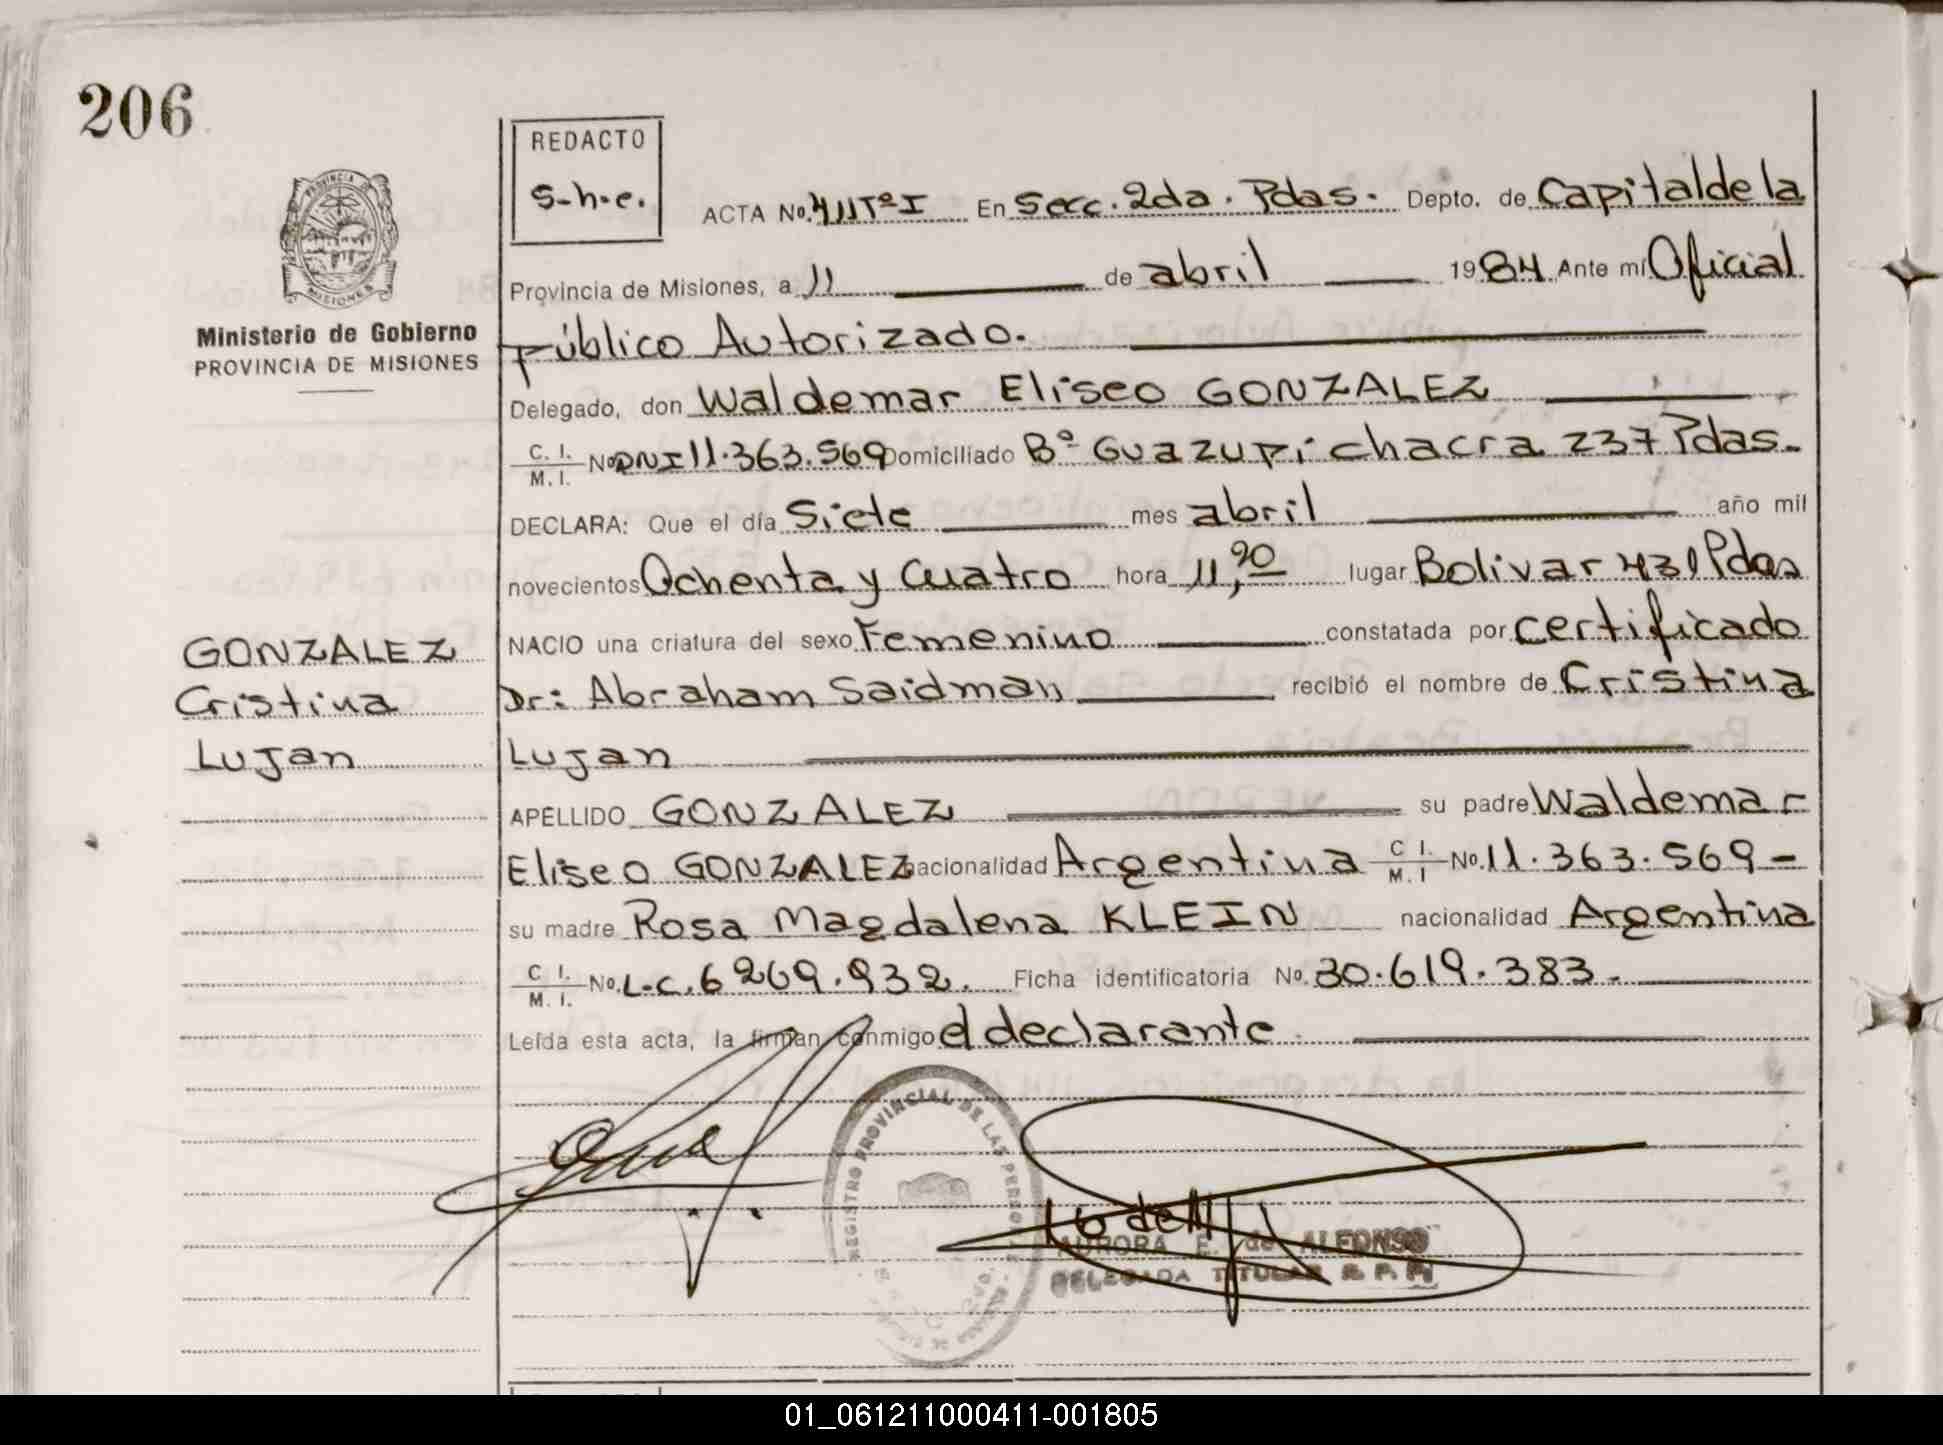 206
REDACTO
s-h-e.
ACTA No. 411 Tº I En Secc. 2da. Pdas. Depto. de Capital de la
PROVINCIA
MISIONES
Provincia de Misiones, a 11 de abril 1984 Ante mí Oficial
Ministerio de Gobierno
PROVINCIA DE MISIONES
público Autorizado.
Delegado, don Waldemar Eliseo GONZALEZ
C. I. M. I. No. DNI 11.363.569 Domiciliado Bº Guazupi chacra 237 Pdas.
DECLARA: Que el día Siete mes abril año mil
novecientos Ochenta y Cuatro hora 11,20 lugar Bolivar 430 Pdas
GONZALEZ
Cristina
Lujan
NACIO una criatura del sexo Femenino constatada por certificado
Dr: Abraham Saidman recibió el nombre de Cristina
Lujan
APELLIDO GONZALEZ su padre Waldemar
Eliseo GONZALEZ nacionalidad Argentina C I. M. I No. 11.363.569-
su madre Rosa Magdalena KLEIN nacionalidad Argentina
C I. M. I. No. L.C. 6269.932. Ficha identificatoria No. 30.619.383.
Leída esta acta, la firman conmigo el declarante
REGISTRO PROVINCIAL DE LAS PERSONAS
AURORA E. de ALFONSO
DELEGADA TITULAR R. P. P.
01_061211000411-001805